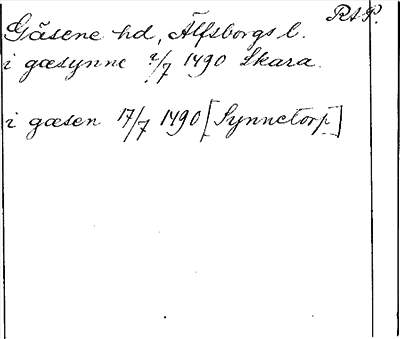 RAP.
Gäsene hd, Älfsborgs l.
i gæsynne 2/7 1490 Skara.
i gæsen 17/7 1490 [Synnetorp]